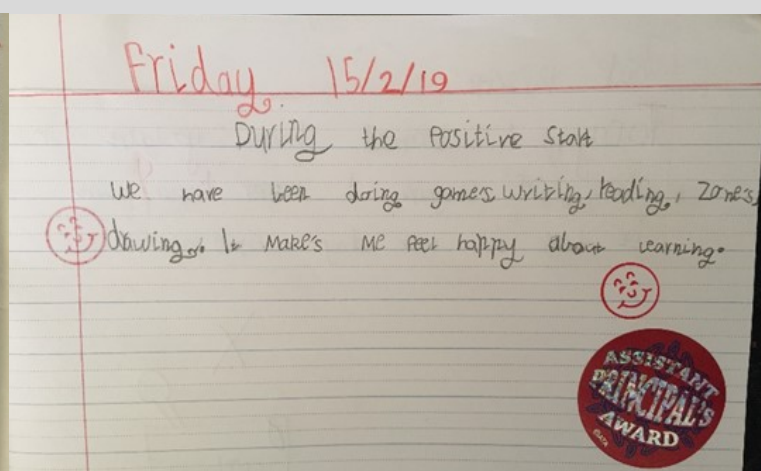 Friday 15/2/19
During the Positive Start
We have been doing game's, writing, reading, Zone's,
drawing. It Make's Me Feel happy about Learning.
ASSISTANT
PRINCIPAL'S
AWARD